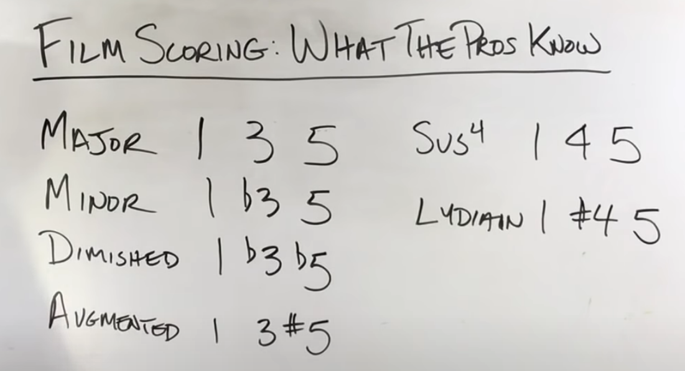 FILM SCORING: WHAT THE PROS KNOW
MAJOR 1 3 5
MINOR 1 b3 5
DIMISHED 1 b3 b5
AUGMENTED 1 3 #5
SUS4 1 4 5
LYDIAIN 1 #4 5